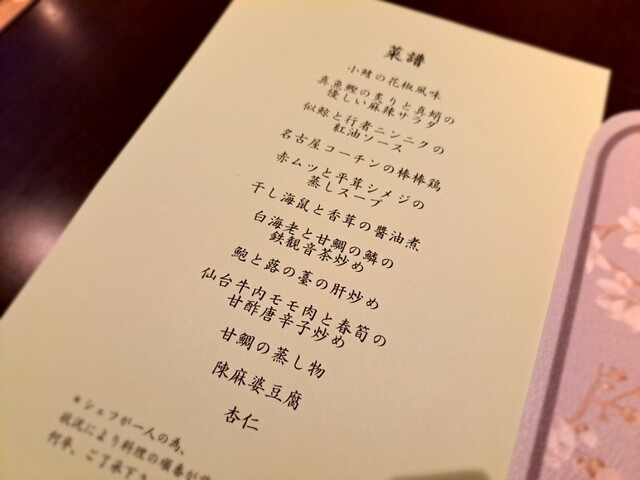 菜譜
小鰭の花椒風味
真魚鰹の炙りと真蛸の
優しい麻辣サラダ
似鯨と行者ニンニクの
紅油ソース
名古屋コーチンの棒棒鶏
赤ムツと平茸シメジの
蒸しスープ
干し海鼠と香茸の醬油煮
白海老と甘鯛の鱗の
鉄観音茶炒め
鮑と蕗の薹の肝炒め
仙台牛内モモ肉と春筍の
甘酢唐辛子炒め
甘鯛の蒸し物
陳麻婆豆腐
杏仁
*シェフが一人の為、
状況により料理の順番が
何卒、ご了承下さ